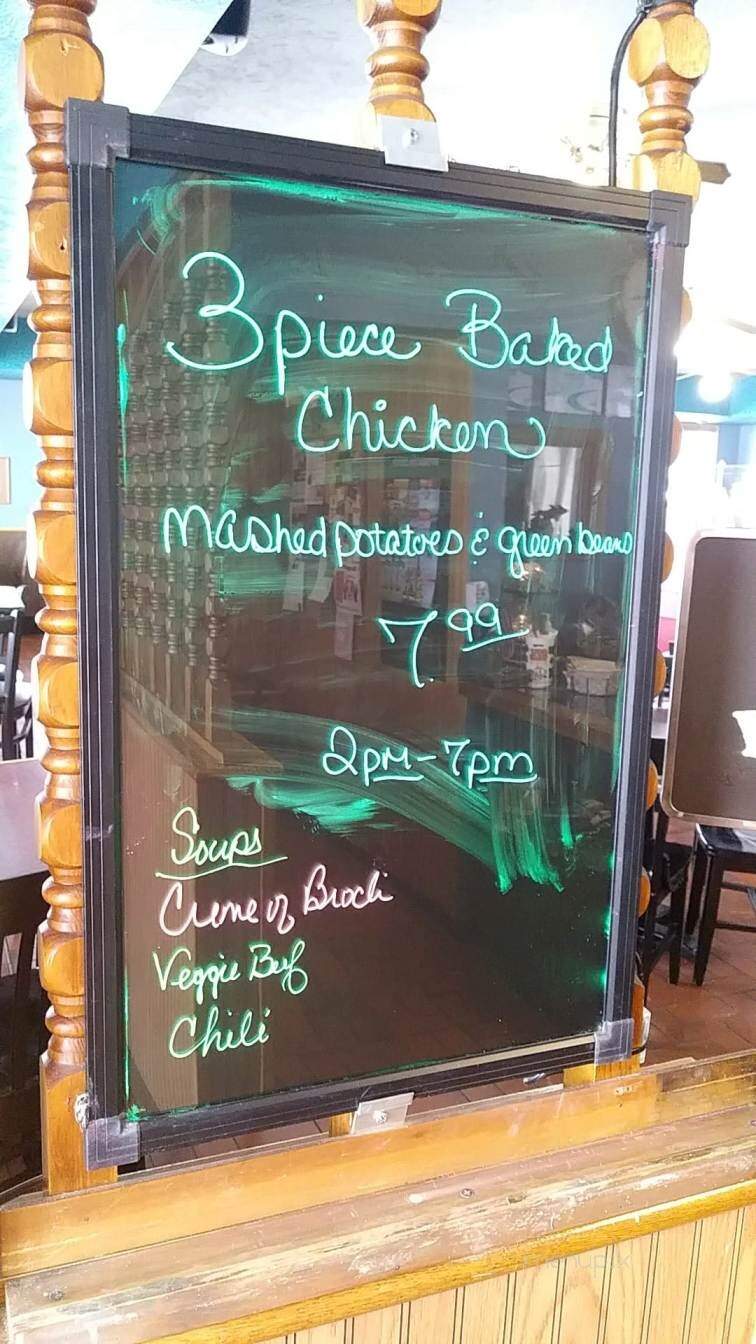 3 piece Baked
Chicken
Mashed potatoes & green beans
7.99
2pm-7pm
Soups
Creme of Brocli
Veggie Beef
Chili